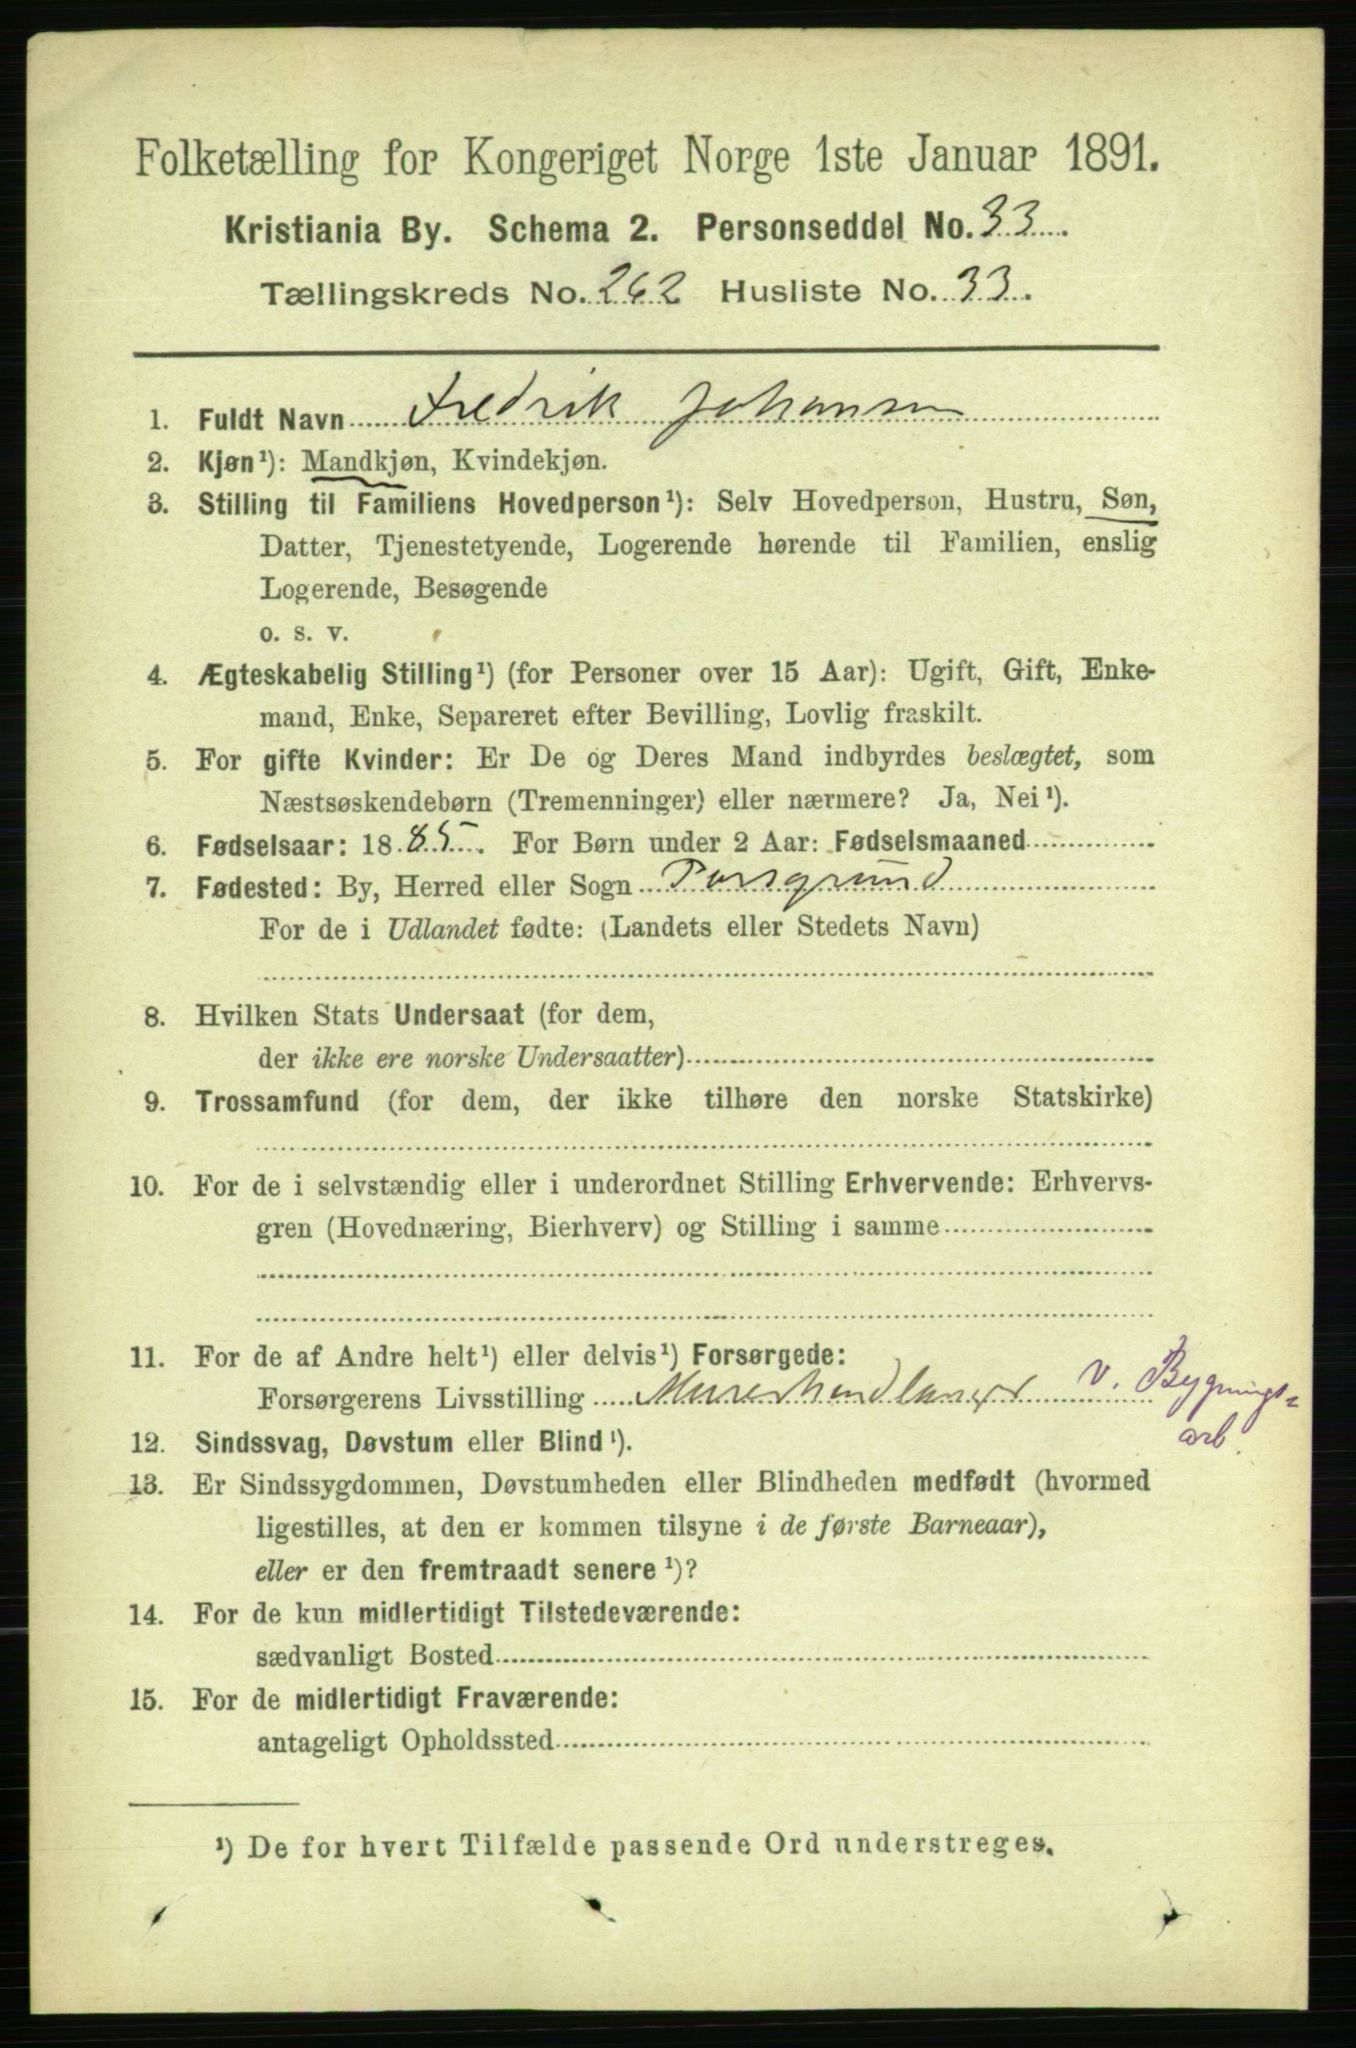 Folketælling for Kongeriget Norge 1ste Januar 1891.
Kristiania By. Schema 2. Personseddel No. 33.
Tællingskreds No. 262 Husliste No. 33.
1. Fuldt Navn Fredrik Johansen
2. Kjøn¹): Mandkjøn, Kvindekjøn.
3. Stilling til Familiens Hovedperson¹): Selv Hovedperson, Hustru, Søn,
Datter, Tjenestetyende, Logerende hørende til Familien, enslig
Logerende, Besøgende
o. s. v.
4. Ægteskabelig Stilling¹) (for Personer over 15 Aar): Ugift, Gift, Enke-
mand, Enke, Separeret efter Bevilling, Lovlig fraskilt.
5. For gifte Kvinder: Er De og Deres Mand indbyrdes beslægtet, som
Næstsøskendebørn (Tremenninger) eller nærmere? Ja, Nei¹).
6. Fødselsaar: 1885. For Børn under 2 Aar: Fødselsmaaned
7. Fødested: By, Herred eller Sogn Porsgrund
For de i Udlandet fødte: (Landets eller Stedets Navn)
8. Hvilken Stats Undersaat (for dem,
der ikke ere norske Undersaatter)
9. Trossamfund (for dem, der ikke tilhøre den norske Statskirke)
10. For de i selvstændig eller i underordnet Stilling Erhvervende: Erhvervs-
gren (Hovednæring, Bierhverv) og Stilling i samme
11. For de af Andre helt¹) eller delvis¹) Forsørgede:
Forsørgerens Livsstilling Murerhandlanger v. Bygnings=
arb.
12. Sindssvag, Døvstum eller Blind¹).
13. Er Sindssygdommen, Døvstumheden eller Blindheden medfødt (hvormed
ligestilles, at den er kommen tilsyne i de første Barneaar),
eller er den fremtraadt senere¹)?
14. For de kun midlertidigt Tilstedeværende:
sædvanligt Bosted
15. For de midlertidigt Fraværende:
antageligt Opholdssted
¹) De for hvert Tilfælde passende Ord understreges.